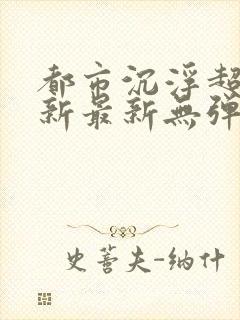 都市沉浮超
新最新無弹
史蒈夫-纳什